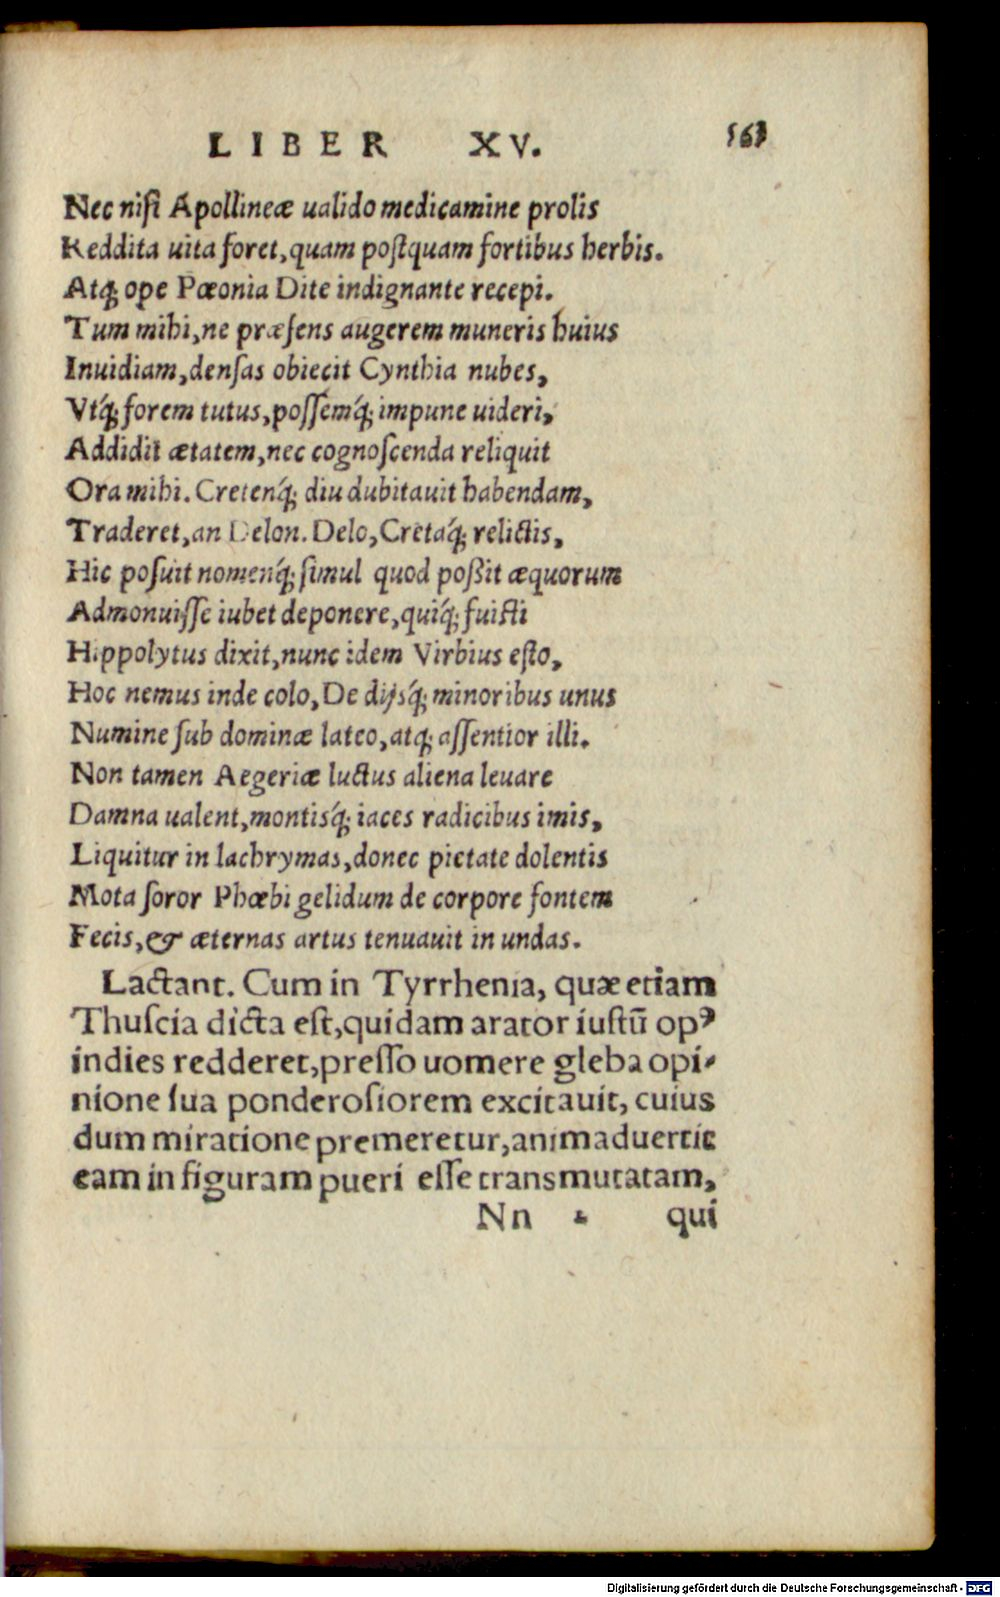 LIBER XV. 563
Nec nisi Apollineæ ualido medicamine prolis
Reddita uita foret, quam postquam fortibus herbis.
Atq; ope Pæonia Dite indignante recepi.
Tum mihi, ne præsens augerem muneris huius
Inuidiam, densas obiecit Cynthia nubes,
Vtq́; forem tutus, possemq́; impune uideri,
Addidit ætatem, nec cognoscenda reliquit
Ora mihi. Cretenq́; diu dubitauit habendam,
Traderet, an Delon. Delo, Cretaq́; relictis,
Hic posuit nomenq́; simul quod poßit æquorum
Admonuisse iubet deponere, quiq́; fuisti
Hippolytus dixit, nunc idem Virbius esto,
Hoc nemus inde colo, De dijsq́; minoribus unus
Numine sub dominæ lateo, atq; assentior illi.
Non tamen Aegeriæ luctus aliena leuare
Damna ualent, montisq́; iaces radicibus imis,
Liquitur in lachrymas, donec pietate dolentis
Mota soror Phœbi gelidum de corpore fontem
Fecis, & æternas artus tenuauit in undas.
Lactant. Cum in Tyrrhenia, quæ etiam
Thuscia dicta est, quidam arator iustũ opꝰ
indies redderet, presso uomere gleba opi-
nione sua ponderosiorem excitauit, cuius
dum miratione premeretur, animaduertit
eam in figuram pueri esse transmutatam,
Nn 2 qui
Digitalisierung gefördert durch die Deutsche Forschungsgemeinschaft - DFG